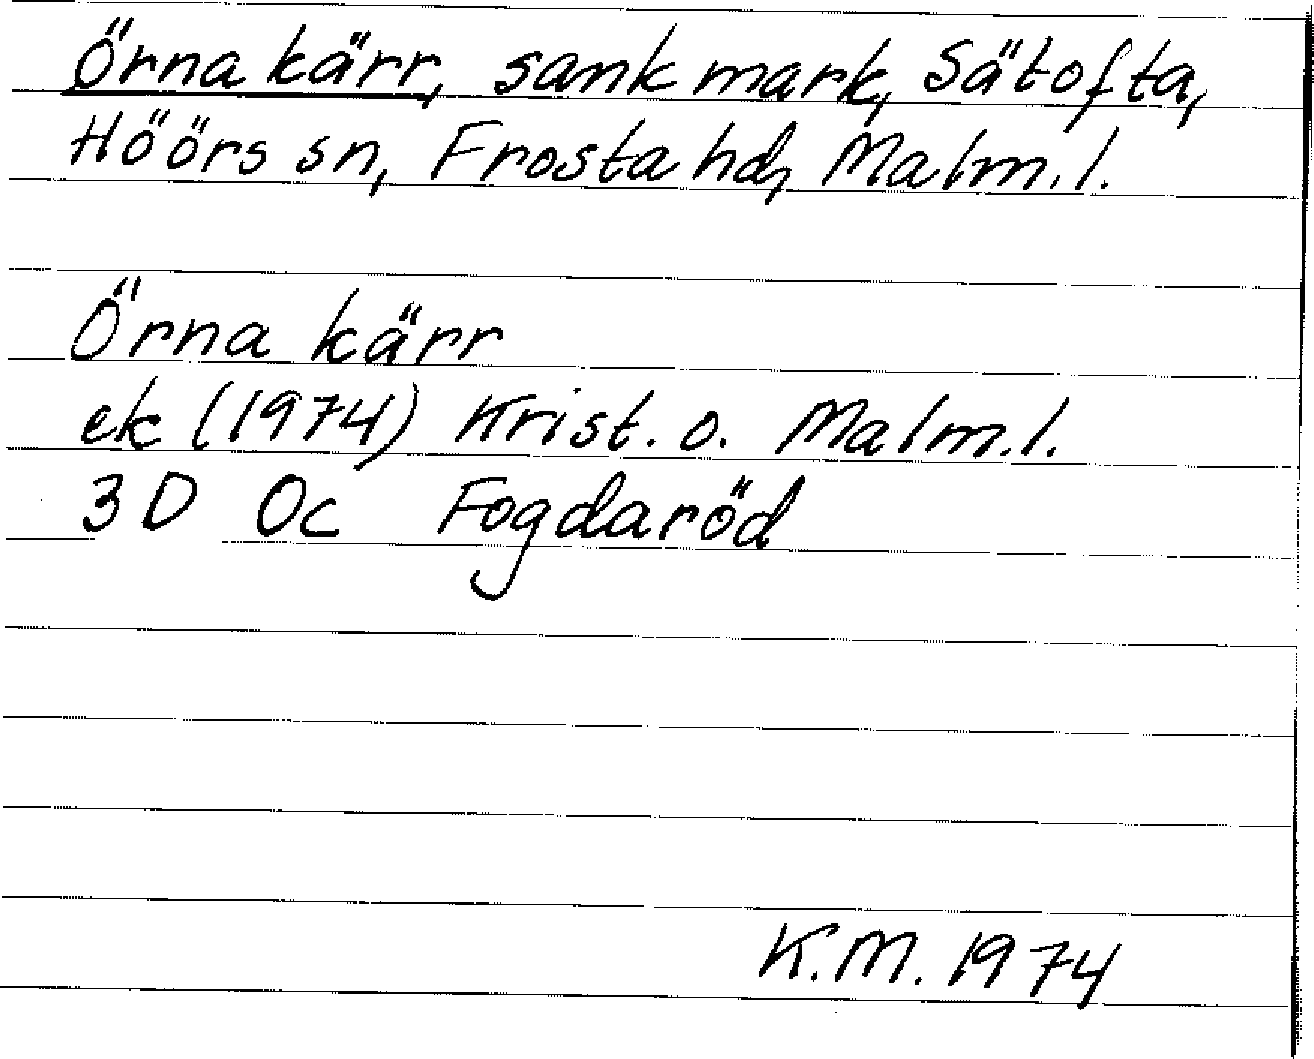 Örna kärr, sank mark, Sätofta,
Höörs sn, Frosta hd, Malm. l.
Örna kärr
ek (1974) Krist. o. Malm. l.
3D 0c Fogdaröd
K.M. 1974